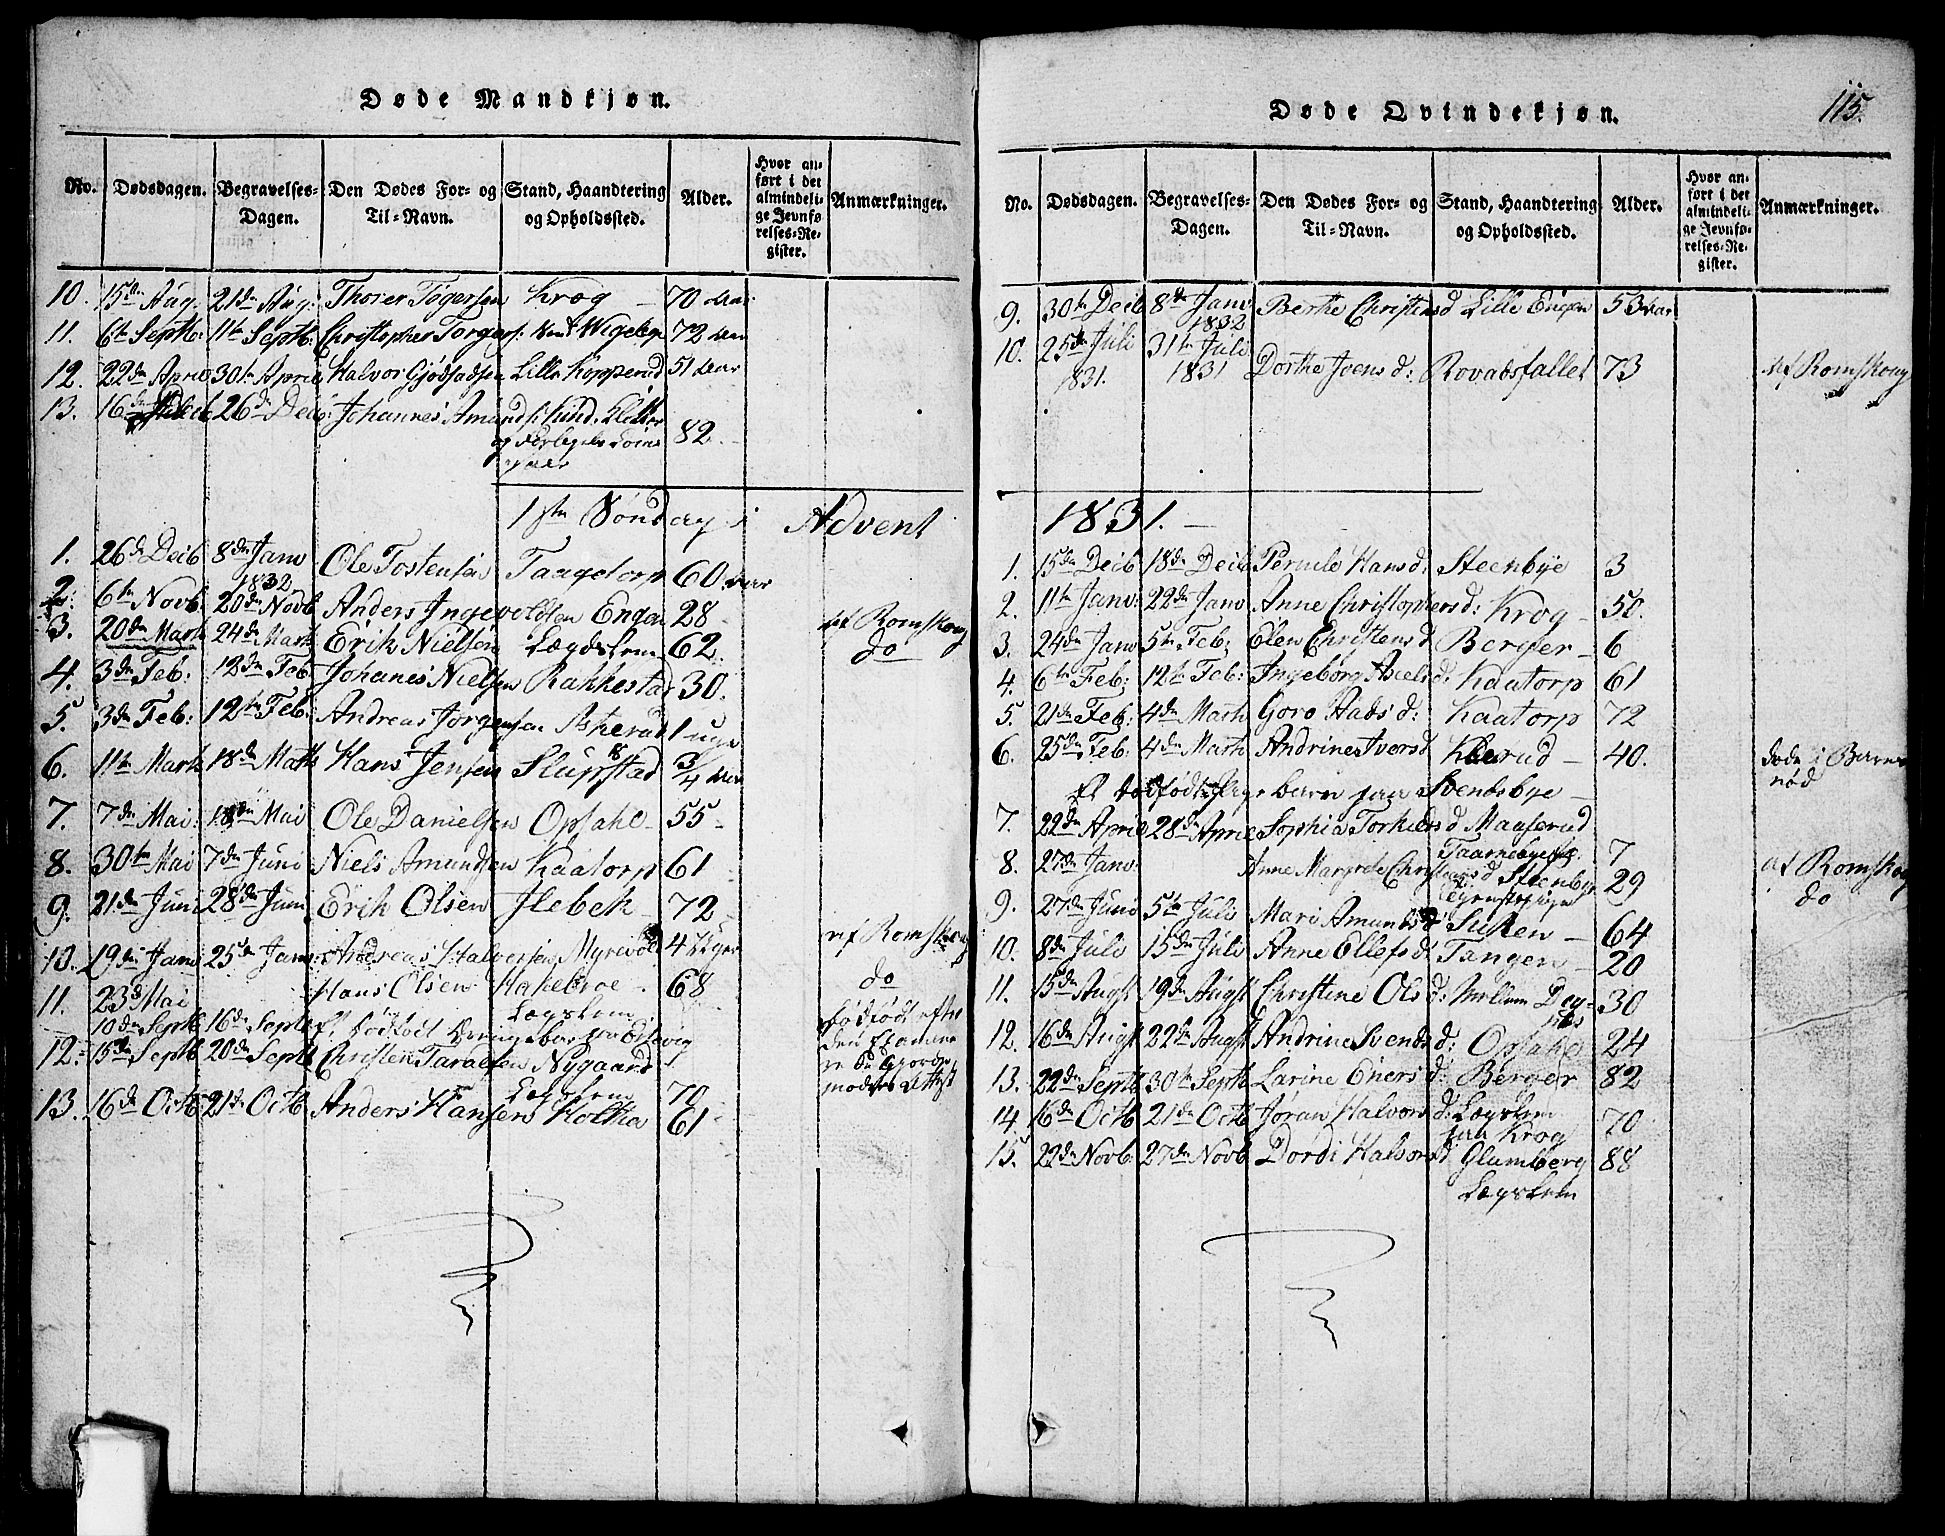 Døde Mandkjøn.
No. Dødsdagen. Begravelses-Dagen. Den Dødes For- og Til-Navn. Stand, Haandtering og Opholdssted. Alder. Hvor anført i det almindelige Jevnførelses-Register. Anmærkninger.
10. 15de Aug. 21de Aug: Thorer Togersen Krog 70 Aar
11. 6te Septb: 11te Septb: Christopher Torgers:
72 Aar
12. 22de April 30te April Halvor Gjødsadsen Lille Kopperud 51 Aar
13. 16de Decb 26de Decb: Johannes Amunds:
82.
1ste Søndag i Advent
1. 26de Decb 8de Janv 1832 Ole Tostensen Taagetorp 60 Aar
2. 6te Novb. 20de Novb Anders Ingevoldsen Engen 28
3. 20de Marts 24de Marts Erik Nielsen Lægdslem 62 af Romskoug
4. 3de Feb: 12de Feb Johanes Nielsen Rakkestad 30. do
5. 3de Feb: 12te Feb: Andreas Jorgensen 1 uge
6. 11te Marts 18de Marts Hans Jensen Slupstad 3/4 Aar
7. 7de Mai: 18de Mai Ole Danielsen Opsahl 55
8. 30te Mai 7de Juni Niels Amundsen Kaatorp 61
9. 21de Juni 28de Juni Erik Olsen Ilebek 72
10. 19de Janv 25de Janv Andreas Halversen Myrevold 4 Uger af Romskoug
11. 23de Mai Hans Olsen Hakebroe 68 do
Lægslem
10de Septb 16de Septb Et dødfødt Drengebarn
12. 15de Septb 20de Septb Christen Taralsen Nygaard
Lægslem 70
13. 16de Octb 21de Octb Anders Hansen Holtha 61
Døde Qvindekjøn.
115.
No. Dødsdagen. Begravelses-Dagen. Den Dødes For- og Til-Navn. Stand, Haandtering og Opholdssted. Alder. Hvor anført i det almindelige Jevnførelses-Register. Anmærkninger.
9. 30te Decb 8de Janv 1832 Berthe Christensd Lille Engen 53 Aar
10. 25de Juli 1831. 31te Juli 1831 Dorthe Joensd: 73 af Romskoug
1831.
1. 15de Decb 18de Decb Pernile Hansd: Steenbye 3
2. 11te Janv: 22de Janv Anne Christophersd: Krog 50.
3. 24de Janv 5te Feb: Elen Christensd Berger 6
4. 6te Feb: 12te Feb: Ingeborg Axelsd: Kaatorp 61
5. 21de Feb: 4de Marts Goro Hadsd: Kaatorp 72
6. 25de Feb: 4de Marts Andrine Iversd 40. døde i Barnenød
Et dødfødt Pigebarn paa Svendsbye
7. 22de April 28de April Sophia Torkildsd Maaserud
7
8. 27de Janv: Anne Margrete Christensd Steenbye 29 af Romskoug
9. 27de Juni 5te Juli Mari Amundsd 64 do
10. 8de Juli 15de Juli Anne Ollefsd Tangen 20
11. 15de Augst 19de Augst Christine Olsd: 30
12. 16de Augst 22de Augst Andrine Svendsd: Opsahl 24
13. 22de Septb 30te Septb Larine Enersd: Berger 82
14. 16de Octb 21de Octb Jøran Halvorsd: Lægslem paa Krog 70
15. 22de Novb. 27de Novb Dordi Halvorsd Glumberg 88
Lægslem